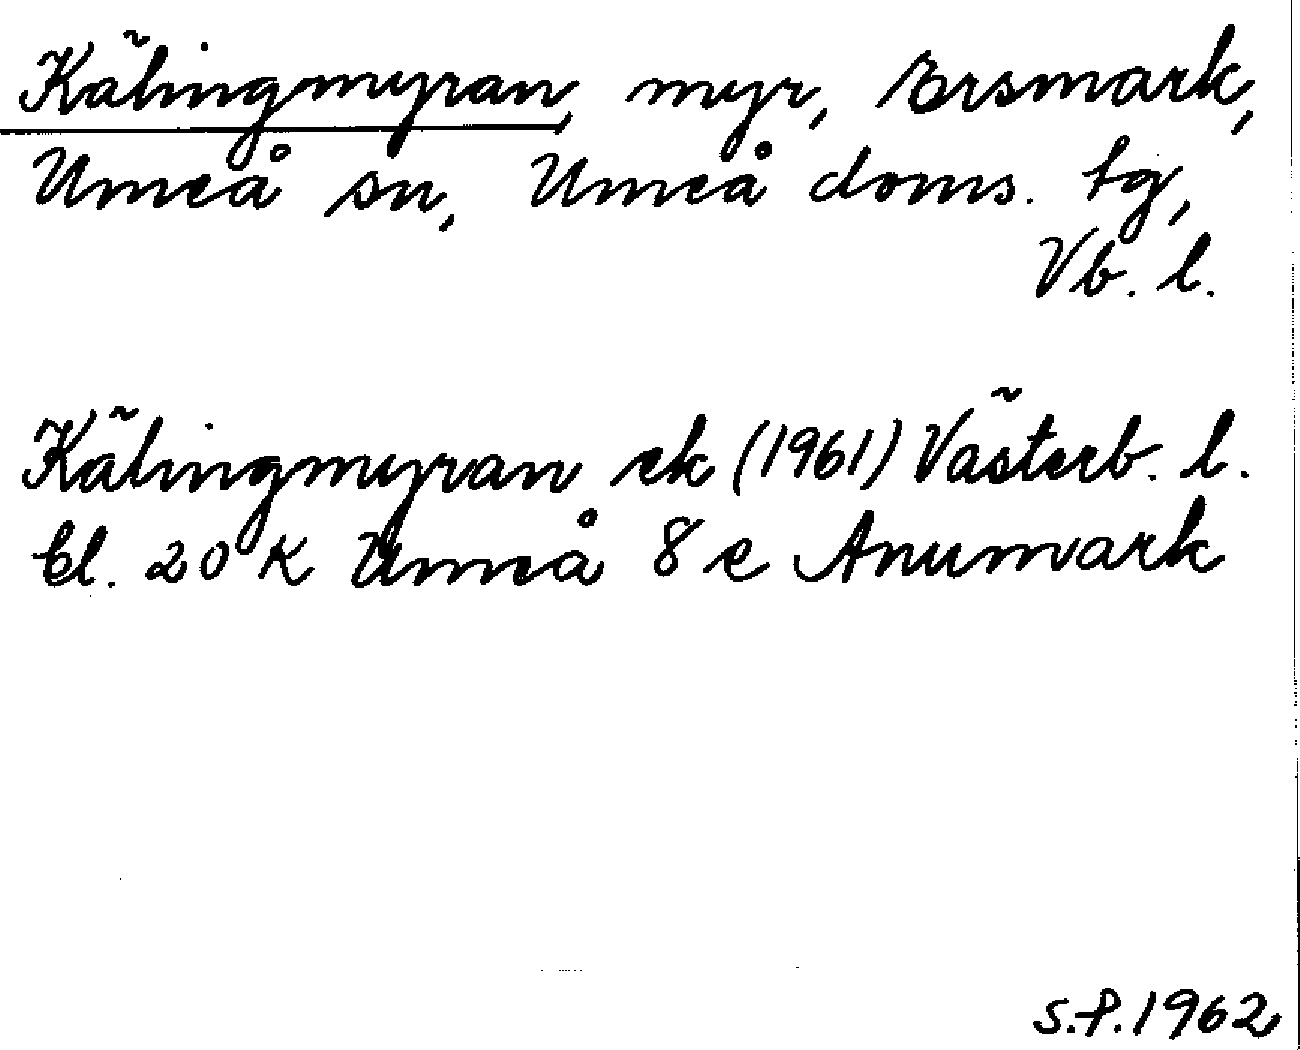 Kälingmyran, myr, Ersmark,
Umeå sn, Umeå doms. tg,
Vb. l.
Kälingmyran ek (1961) Västerb. l.
bl. 20 K Umeå 8 e Anumark
S.P. 1962